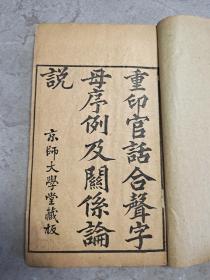 重印官話合聲字
母序例及關係論
説
京師大學堂藏板